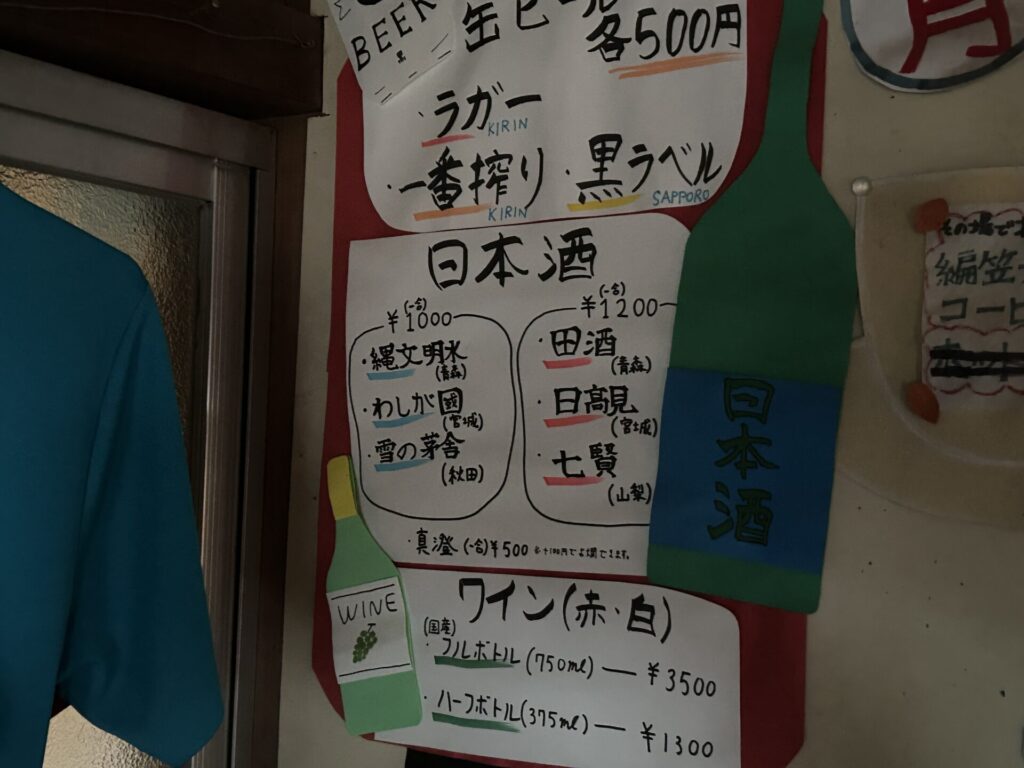 BEER
缶ビール
各500円
・ラガー
KIRIN
・一番搾り
KIRIN
・黒ラベル
SAPPORO
日本酒
(一合)
¥1000
・縄文明水
(青森)
・わしが國
(宮城)
・雪の茅舎
(秋田)
(一合)
¥1200
・田酒
(青森)
・日高見
(宮城)
・七賢
(山梨)
・真澄(一合)¥500 ※+100円でお燗できます。
日本酒
WINE
ワイン(赤・白)
(国産)
・フルボトル(750ml)―¥3500
・ハーフボトル(375ml)―¥1300
その場で
編笠
コーヒ